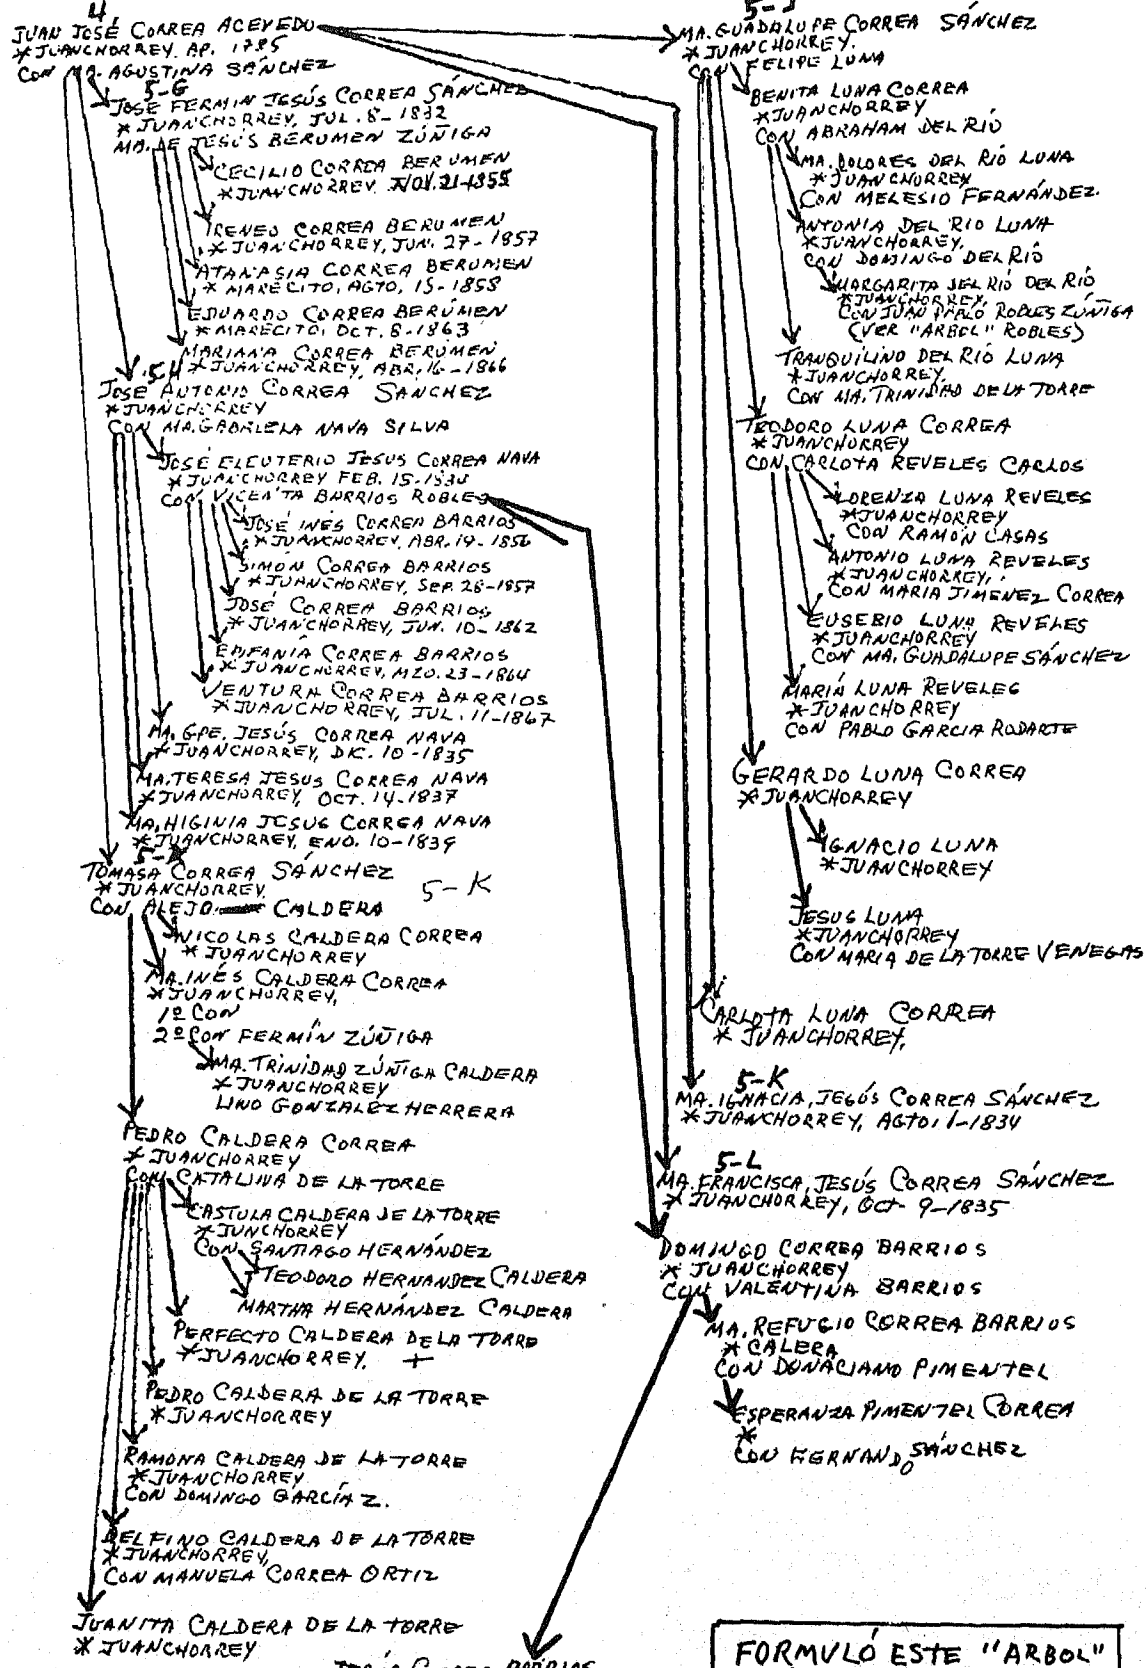 4
JUAN JOSÉ CORREA ACEVEDO
* JUANCHORREY. AP. 1785
CON MA. AGUSTINA SÁNCHEZ
5-G
JOSE FERMIN JESÚS CORREA SÁNCHEZ
* JUANCHORREY, JUL. 8-1832
MA. DE JESÚS BERUMEN ZÚÑIGA
CECILIO CORREA BERUMEN
* JUANCHORREY. NOV. 21-1855
IRENEO CORREA BERUMEN
* JUANCHORREY, JUN. 27-1857
ATANASIA CORREA BERUMEN
* MARECITO, AGTO, 15-1858
EDUARDO CORREA BERUMEN
* MARECITO, OCT. 8-1863
MARIANA CORREA BERUMEN
* JUANCHORREY, ABR. 16-1866
5-H
JOSE ANTONIO CORREA SANCHEZ
* JUANCHORREY
CON MA. GABRIELA NAVA SILVA
JOSÉ ELEUTERIO JESUS CORREA NAVA
* JUANCHORREY FEB. 15-
CON VICENTA BARRIOS ROBLES
JOSÉ INÉS CORREA BARRIOS
* JUANCHORREY, ABR. 19-1856
SIMÓN CORREA BARRIOS
* JUANCHORREY, SEP. 28-1857
JOSÉ CORREA BARRIOS
* JUANCHORREY, JUN. 10-1862
EPIFANÍA CORREA BARRIOS
* JUANCHORREY, MZO. 23-1864
VENTURA CORREA BARRIOS
* JUANCHORREY, JUL. 11-1867
MA. GPE. JESÚS CORREA NAVA
* JUANCHORREY, DIC. 10-1835
MA. TERESA JESUS CORREA NAVA
* JUANCHORREY, OCT. 14-1837
MA. HIGINIA JESUS CORREA NAVA
* JUANCHORREY, ENO. 10-1839
TOMASA CORREA SÁNCHEZ
* JUANCHORREY
5-K
CON ALEJO CALDERA
NICOLAS CALDERA CORREA
* JUANCHORREY
MA. INÉS CALDERA CORREA
* JUANCHORREY,
1º CON
2º CON FERMÍN ZÚÑIGA
MA. TRINIDAD ZÚÑIGA CALDERA
* JUANCHORREY
LINO GONZALEZ HERRERA
PEDRO CALDERA CORREA
* JUANCHORREY
CON CATALINA DE LA TORRE
CASTULA CALDERA DE LA TORRE
* JUNCHORREY
CON SANTIAGO HERNÁNDEZ
TEODORO HERNANDEZ CALDERA
MARTHA HERNÁNDEZ CALDERA
PERFECTO CALDERA DE LA TORRE
* JUANCHORREY. +
PEDRO CALDERA DE LA TORRE
* JUANCHORREY
RAMONA CALDERA DE LA TORRE
* JUANCHORREY
CON DOMINGO GARCÍA Z.
DELFINO CALDERA DE LA TORRE
* JUANCHORREY,
CON MANUELA CORREA ORTIZ
JUANITA CALDERA DE LA TORRE
* JUANCHORREY
5-J
MA. GUADALUPE CORREA SÁNCHEZ
* JUANCHORREY.
CON FELIPE LUNA
BENITA LUNA CORREA
* JUANCHORREY
CON ABRAHAM DEL RIÓ
MA. DOLORES DEL RIÓ LUNA
* JUANCHORREY
CON MELESIO FERNÁNDEZ.
ANTONIA DEL RIO LUNA
* JUANCHORREY,
CON DOMINGO DEL RIÓ
MARGARITA DEL RIÓ DEL RIÓ
* JUANCHORREY,
CON JUAN PABLO ROBLES ZÚÑIGA
(VER "ARBOL" ROBLES)
TRANQUILINO DEL RIÓ LUNA
* JUANCHORREY,
CON MA. TRINIDAD DE LA TORRE
TEODORO LUNA CORREA
* JUANCHORREY
CON CARLOTA REVELES CARLOS
LORENZA LUNA REVELES
* JUANCHORREY
CON RAMÓN CASAS
ANTONIO LUNA REVELES
* JUANCHORREY,
CON MARIA JIMENEZ CORREA
EUSEBIO LUNA REVELES
* JUANCHORREY
CON MA. GUADALUPE SÁNCHEZ
MARÍA LUNA REVELES
* JUANCHORREY
CON PABLO GARCIA RODARTE
GERARDO LUNA CORREA
* JUANCHORREY
IGNACIO LUNA
* JUANCHORREY
JESUS LUNA
* JUANCHORREY
CON MARIA DE LA TORRE VENEGAS
CARLOTA LUNA CORREA
* JUANCHORREY,
5-K
MA. IGNACIA, JESÚS CORREA SÁNCHEZ
* JUANCHORREY, AGTO. 1-1834
5-L
MA. FRANCISCA, JESÚS CORREA SÁNCHEZ
* JUANCHORREY, OCT- 9-1835
DOMINGO CORREA BARRIOS
* JUANCHORREY
CON VALENTINA BARRIOS
MA. REFUGIO CORREA BARRIOS
* CALERA
CON DONACIANO PIMENTEL
ESPERANZA PIMENTEL CORREA
*
CON FERNANDO SÁNCHEZ
FORMULÓ ESTE "ARBOL"